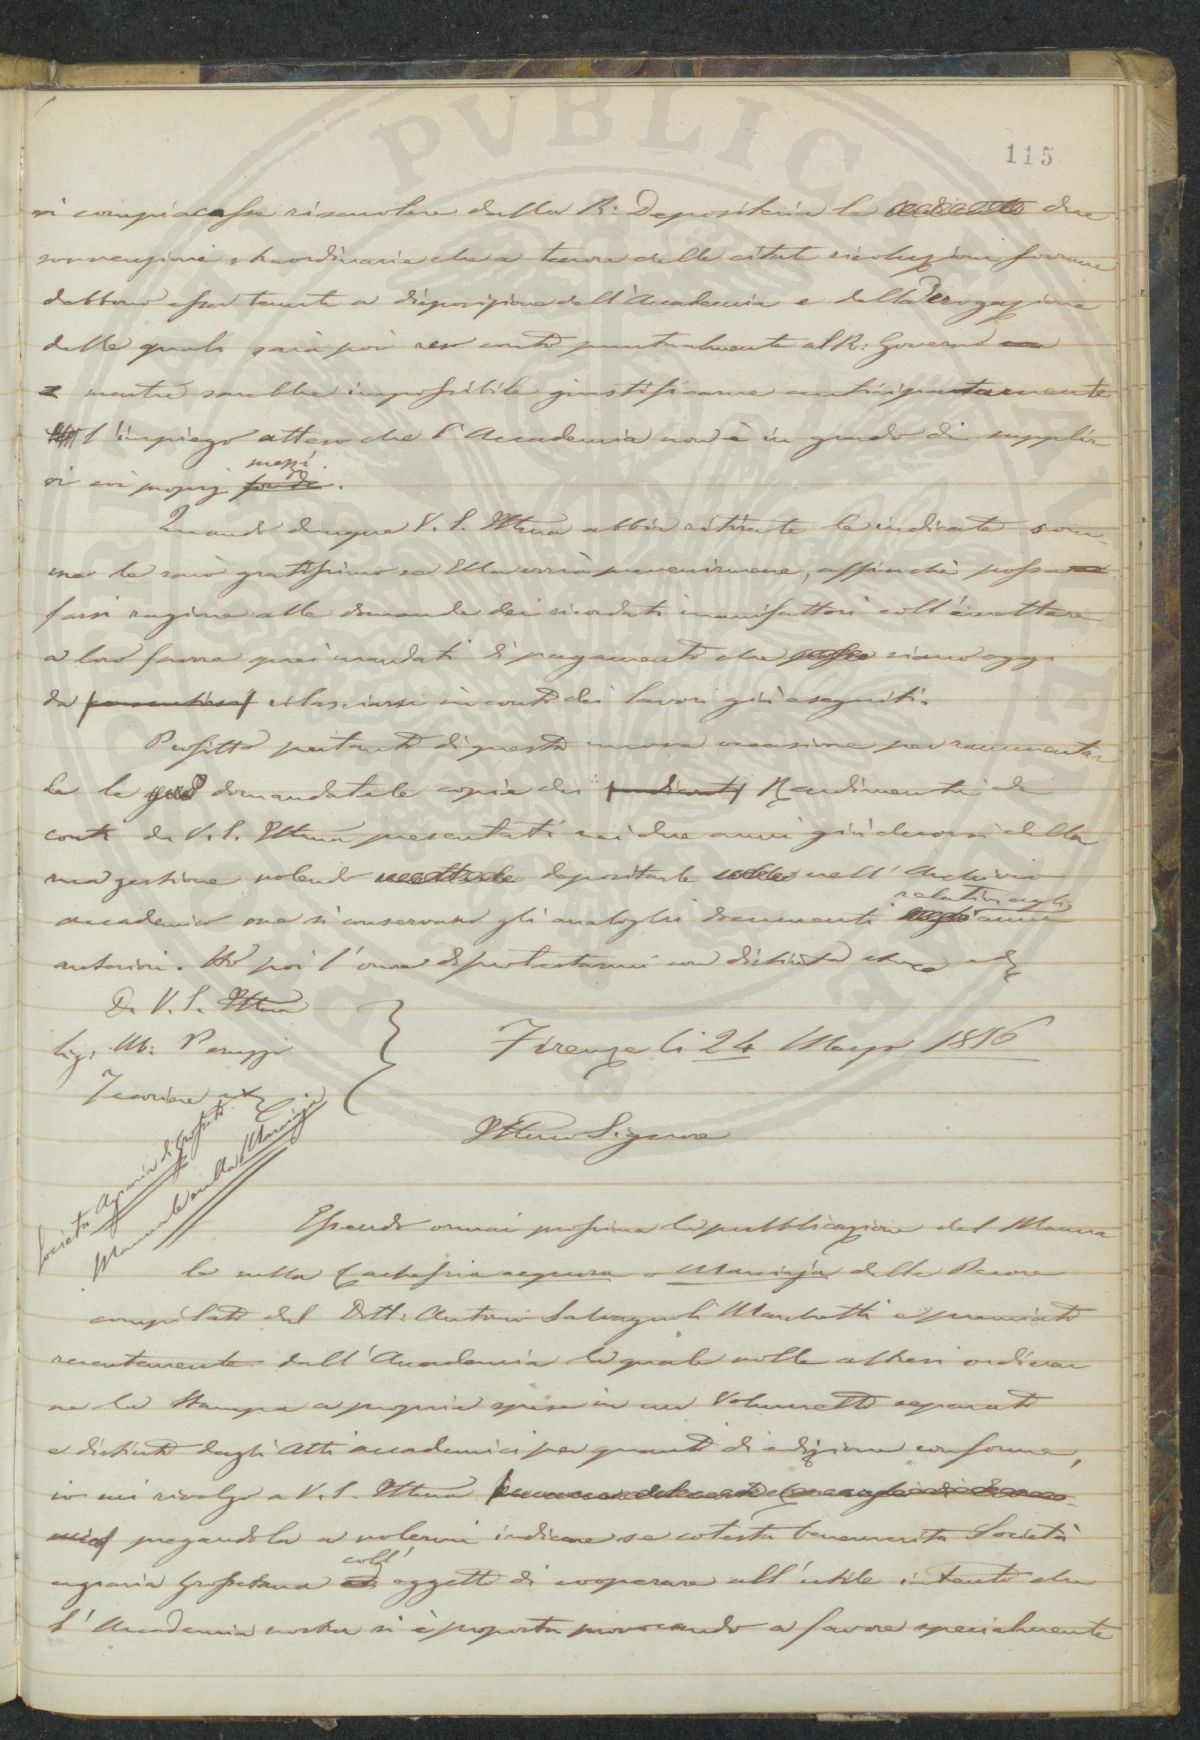 115
si compiacesse riscuotere dalla R: Depositeria le due
sovvenzioni straordinarie che a tenore delle citate risoluzioni sovrane
debbono esser tenute a disposizione dell'Accademia e della erogazione
delle quali sarà poi reso conto puntualmente al R: Governo
mentre sarebbe impossibile giustificarne anticipatamente
l'impiego atteso che l'Accademia non è in grado di supplir
vi coi proprj fondi mezzi.
Quando dunque V. S. Ill͞ma abbia ritirate le indicate som-
me le sarò gratissimo se Ella vorrà prevenirmene, affinchè possa
farsi ragione alle domande dei ricordati manifattori coll'emettere
a loro favore quei mandati di pagamento che siano oggi
da rilasciarsi in conto dei lavori già eseguiti.
Profitto pertanto di questa nuova occasione per rammentar
le le domandatele copie dei Rendimenti di
conti da V. S. Ill͞ma presentati nei due anni già decorsi della
sua gestione volendo depositarle nell'Archivio
accademico ove si conservano gli analoghi documenti relativi agli anni
anteriori. Ho poi l'onore di protestarmi con distinta stima
Di V. S. Ill͞ma
Sig: M: Peruzzi
Tesoriere
Firenze li 24 Marzo 1856
Ill͞mo Signore
Società Agraria di Grosseto
Manuale sulla Marciaja
Essendo ormai prossima la pubblicazione del Manua
le sulla Cachessia acquosa o Marciaja delle Pecore
compilato dal Dott: Antonio Salvagnoli Marchetti e premiato
recentemente dall'Accademia la quale volle altresì ordinar
ne la stampa a proprie spese in un Volumetto separato
e distinto dagli Atti accademici per quanto di edizione conforme,
io mi rivolgo a V. S. Ill͞ma
pregandola a volermi indicare se cotesta benemerita Società
agraria Grossetana coll' oggetto di cooperare all'utile intento che
l'Accademia nostra si è proposta provocando a favore specialmente